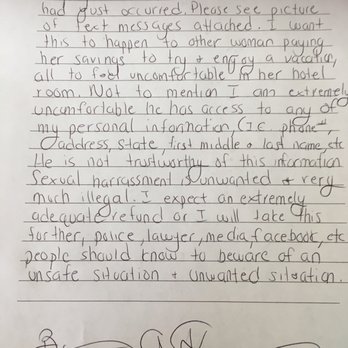 had just occurred. Please see picture
of text messages attached. I want
this to happen to other woman paying
her savings to try + enjoy a vacation,
all to feel uncomfortable in her hotel
room. Not to mention I am extremely
uncomfortable he has access to any of
my personal information, (I.E. phone #,
address, state, first middle + last name, etc
He is not trustworthy of this information
Sexual harrassment is unwanted + very
much illegal. I expect an extremely
adequate refund or I will take this
further, police, lawyer, media, facebook, etc
people should know to beware of an
unsafe situation + unwanted situation.